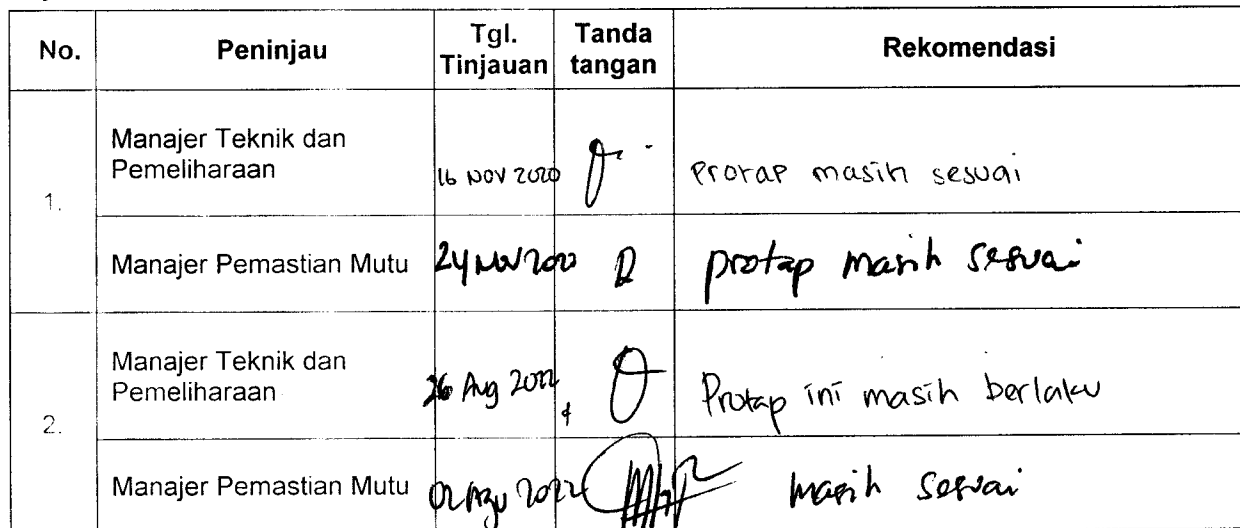 No. Peninjau Tgl. Tinjauan Tanda tangan Rekomendasi
1.
Manajer Teknik dan Pemeliharaan 16 NOV 2020 Protap masih sesuai
Manajer Pemastian Mutu 24 Nov 2020 protap masih sesuai
2.
Manajer Teknik dan Pemeliharaan 26 Aug 2022 Protap ini masih berlaku
Manajer Pemastian Mutu 2022 masih sesuai